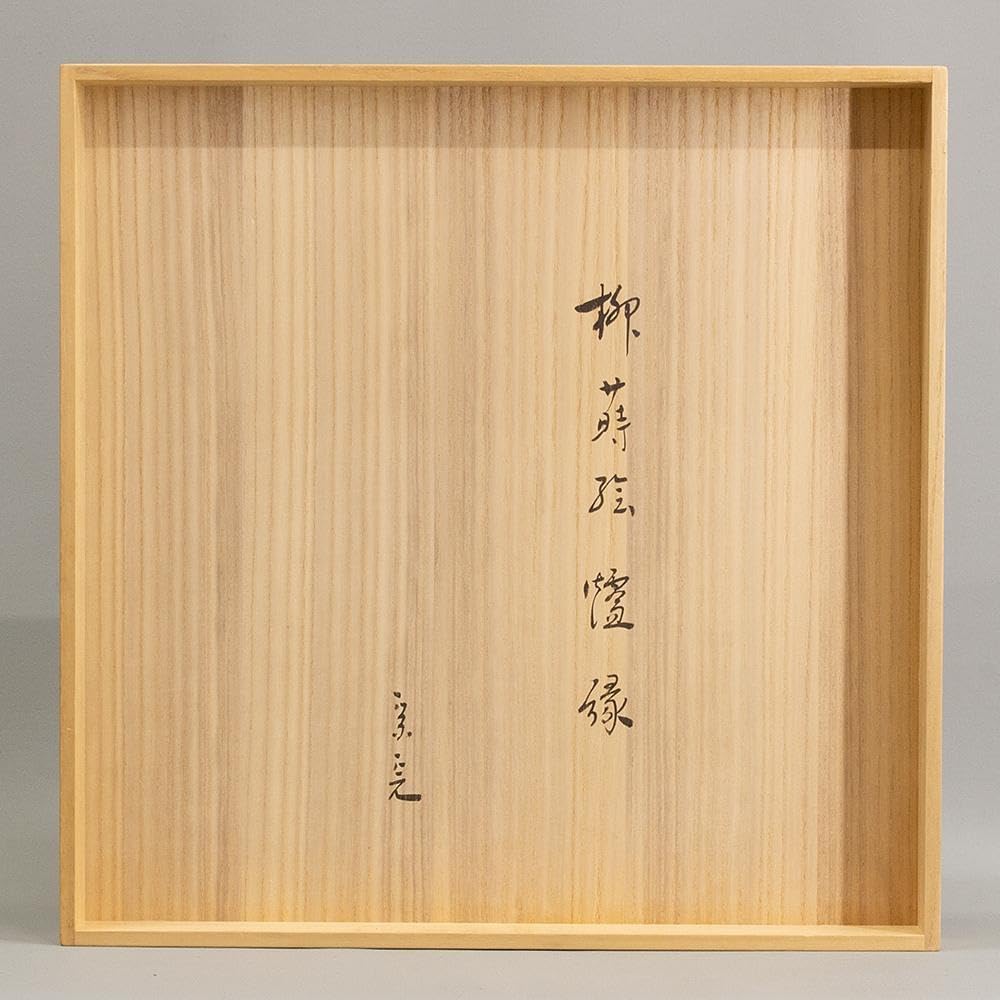 柳蒔絵爐縁
宗完